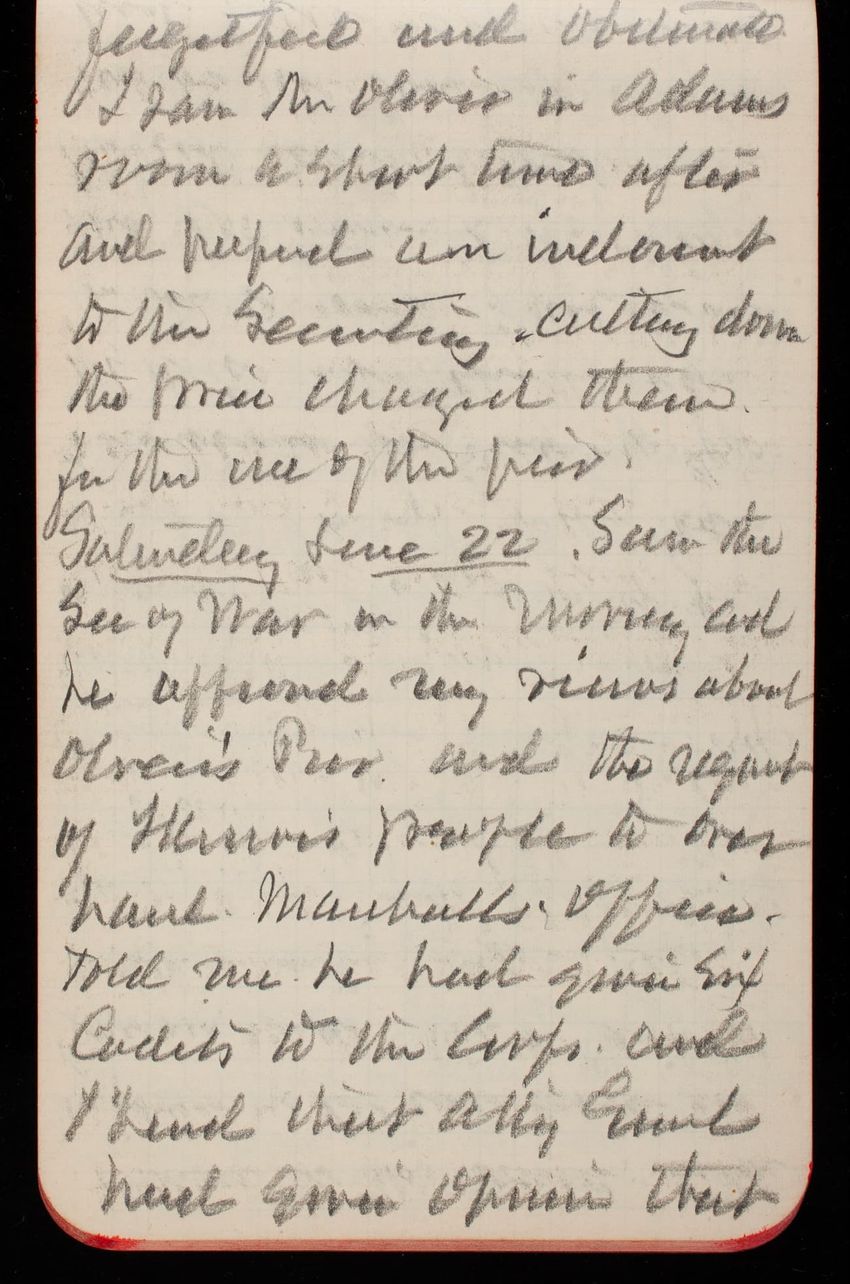 forgetful and obstinate
I saw Mr Oliver in Adams
room a short time after
and prepared an indorsmt
to the Secretary cutting down
the price charged them.
for the use of the pier.
Saturday June 22. Saw the
Sec of War in the Morning and
he approved my views about
Oliver's Pier and the request
of Illinois people to over
haul Marshalls office.
Told me he had given Six
Cadets to the Corps. and
that Atty Genl
had given opinion that